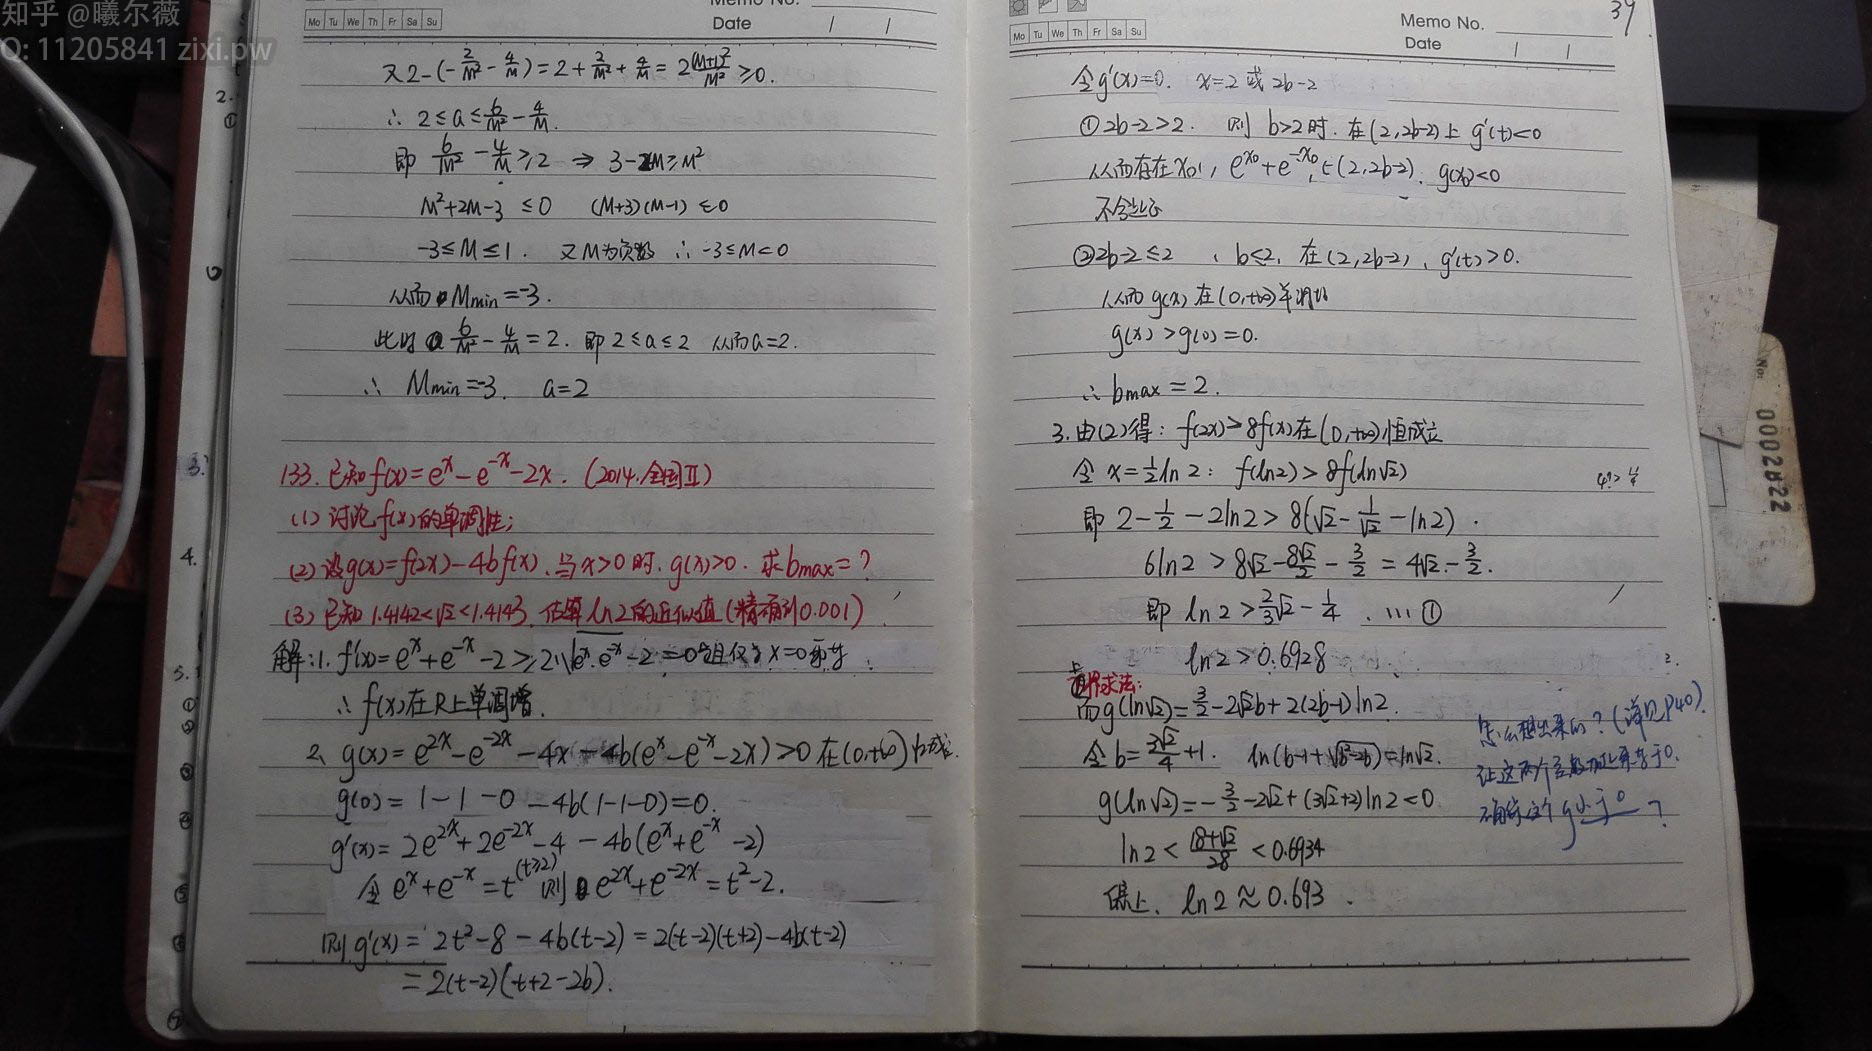 知乎 @曦尔薇
Q: 11205841 zixi.pw
Memo No.
Mo Tu We Th Fr Sa Su
Date / /
又2-(-2/M²-4/M)=2+2/M²+4/M=2(M+1)²/M²≥0.
∴ 2≤a≤6/M²-4/M.
即 6/M²-4/M≥2 ⇒ 3-2M≥M²
M²+2M-3≤0 (M+3)(M-1)≤0
-3≤M≤1. 又M为负数 ∴-3≤M<0
从而Mmin=-3.
此时 6/M²-4/M=2. 即2≤a≤2 从而a=2.
∴ Mmin=-3. a=2
133. 已知f(x)=eˣ-e⁻ˣ-2x. (2014.全国Ⅱ)
(1) 讨论f(x)的单调性;
(2) 设g(x)=f(2x)-4bf(x). 当x>0时. g(x)>0. 求bmax=?
(3) 已知1.4142<√2<1.4143. 估算ln2的近似值(精确到0.001)
解:1. f'(x)=eˣ+e⁻ˣ-2≥2√eˣ·e⁻ˣ-2=0当且仅当x=0取等
∴ f(x)在R上单调增.
2. g(x)=e²ˣ-e⁻²ˣ-4x-4b(eˣ-e⁻ˣ-2x)>0在(0,+∞)恒成立.
g(0)=1-1-0-4b(1-1-0)=0.
g'(x)=2e²ˣ+2e⁻²ˣ-4-4b(eˣ+e⁻ˣ-2)
令eˣ+e⁻ˣ=t(t≥2) 则e²ˣ+e⁻²ˣ=t²-2.
则g'(x)=2t²-8-4b(t-2)=2(t-2)(t+2)-4b(t-2)
=2(t-2)(t+2-2b).
39
Memo No.
Mo Tu We Th Fr Sa Su
Date / /
令g'(x)=0. x=2或2b-2
①2b-2>2. 则b>2时. 在(2,2b-2)上g'(t)<0
从而存在x₀, e^x₀+e^-x₀∈(2,2b-2). g(x₀)<0
不合题
②2b-2≤2, b≤2. 在(2,2b-2), g'(t)>0.
从而g(x)在(0,+∞)单调增
g(x)>g(0)=0.
∴ bmax=2.
3.由(2)得: f(2x)>8f(x)在(0,+∞)恒成立
令x=½ln2: f(ln2)>8f(ln√2)
即 2-1/2-2ln2>8(√2-1/√2-ln2).
6ln2>8√2-8√2/2-3/2=4√2-3/2.
即 ln2>2/3√2-1/4. …①
ln2>0.6928
上界求法:
而g(ln√2)=3/2-2√2b+2(2b-1)ln2.
令b=3√2/4+1. ln(b-1+√b²-2b)=ln√2.
g(ln√2)=-3/2-2√2+(3√2+2)ln2<0
ln2<18+√2/28<0.6934
综上. ln2≈0.693.
怎么想出来的?(详见P40).
让这两个 加起来等于0.
g 0?
No:
0002822
2.
①
3.
4.
5.1